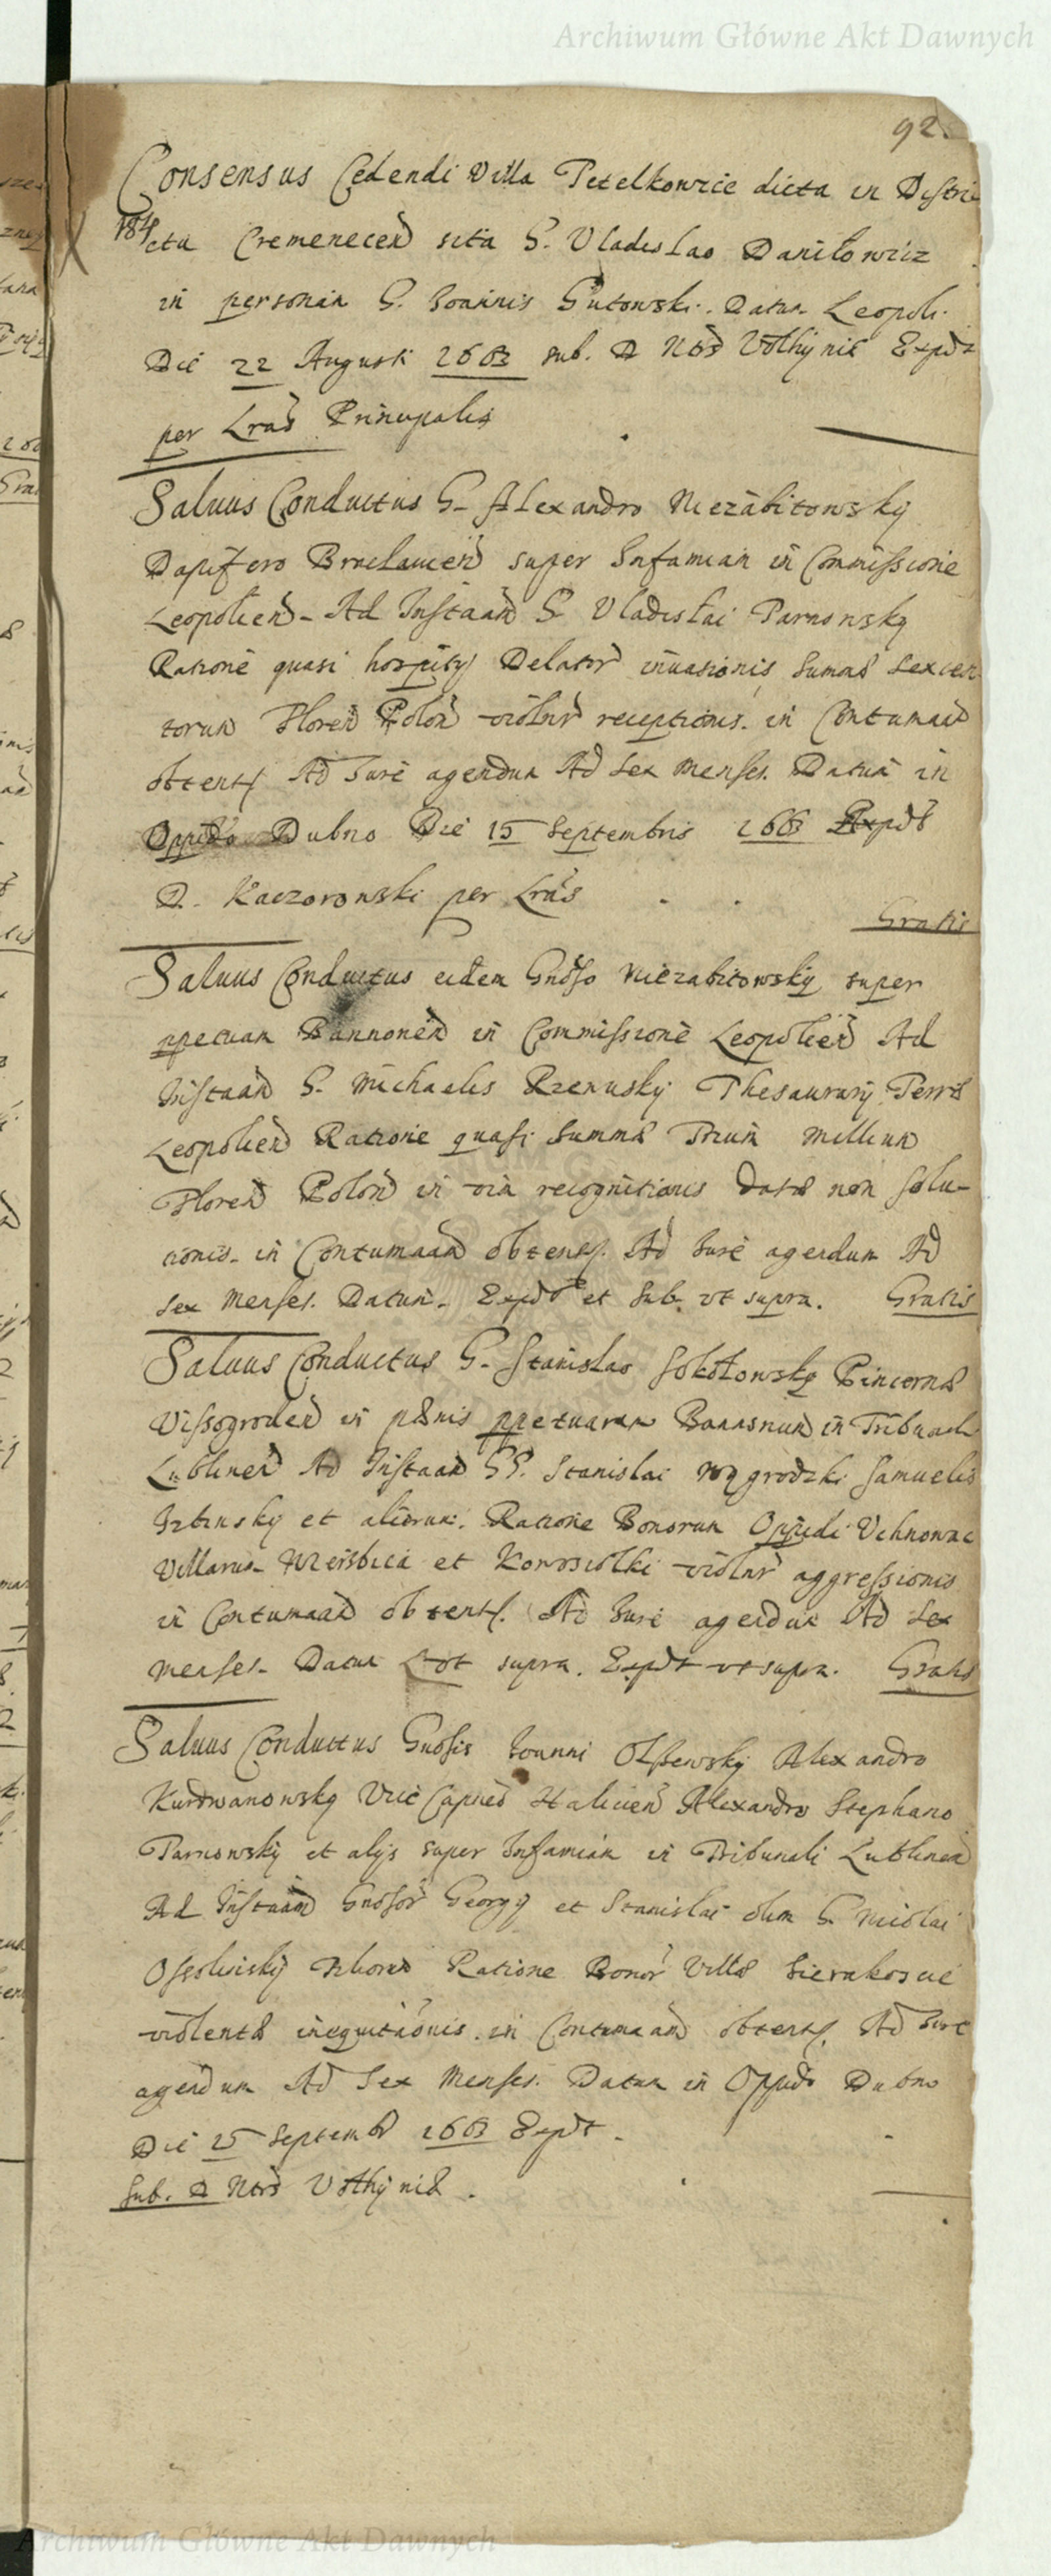 Archiwum Główne Akt Dawnych
92.
Consensus Cedendi Villa Petelkowice dicta in Distri
184
ctu Cremenecen sita G. Vladislao Daniłowicz
in personam G. Joannis Gutowski. Datum Leopoli.
Die 22 August 1663 sub. D Nts Volhyniæ Expdt
per Lras Principalis
Saluus Conductus G. Alexandro Niezabitowsky
Dapifero Braclauien super Infamiam in Commissione
Leopolien. Ad Instaan G. Vladislai Tarnowsky
Ratione quasi hospitÿ Delator inuasionis summæ sexcen
torum Floren Polon violnr receptionis. in Contumaan
obtent. Ad Jure agendum Ad sex Menses. Datum in
Oppido Dubno Die 15 Septembris 1663 Expdt
D. Kaczorowski per Lras
Gratis
Saluus Conductus eidem Gnoso Niezabitowsky super
ppetuam Bannonem in Commissione Leopolien Ad
Instaan G. Michaelis Rzewusky Thesaurarÿ Terræ
Leopolien Ratione quasi Summæ Trium Millium
Floren Polon in vim recognitionis datæ non solu-
tionis. in Contumaan obtent. Ad Jure agendum Ad
sex Menses. Datum. Expdt et sub. vt supra. Gratis
Saluus Conductus G. Stanislao Sokołowsky Pincernæ
Vissogroden in pænis ppetuarum Bannonum in Tribunali
Lublinen Ad Instaan GG. Stanislai Samuelis
et aliorum. Ratione Bonorum Oppidi Vchnowic
Villarum Wierzbica et Korosiołki violnr aggressionis
in Contumaan obtent. Ad Jure agendum Ad sex
Menses. Datum vt supra. Expdt vt supra. Gratis
Saluus Conductus Gnosis Joanni Olszewsky Alexandro
Kurdwanowsky Vice Capneo Halicien Alexandro Stephano
Tarnowsky et alÿs super Infamiam in Tribunali Lublinen
Ad Instaan Gnosor Georgÿ et Stanislai olim G. Nicolai
Ossolinskÿ Ratione Bonor Villæ Sierakosce
violentæ inequitaonis. in Contumaan obtent. Ad Jure
agendum Ad Sex Menses. Datum in Oppido Dubno
Die 15 Septemb 1663 Expdt.
Sub. D Nts Volhyniæ.
Archiwum Główne Akt Dawnych